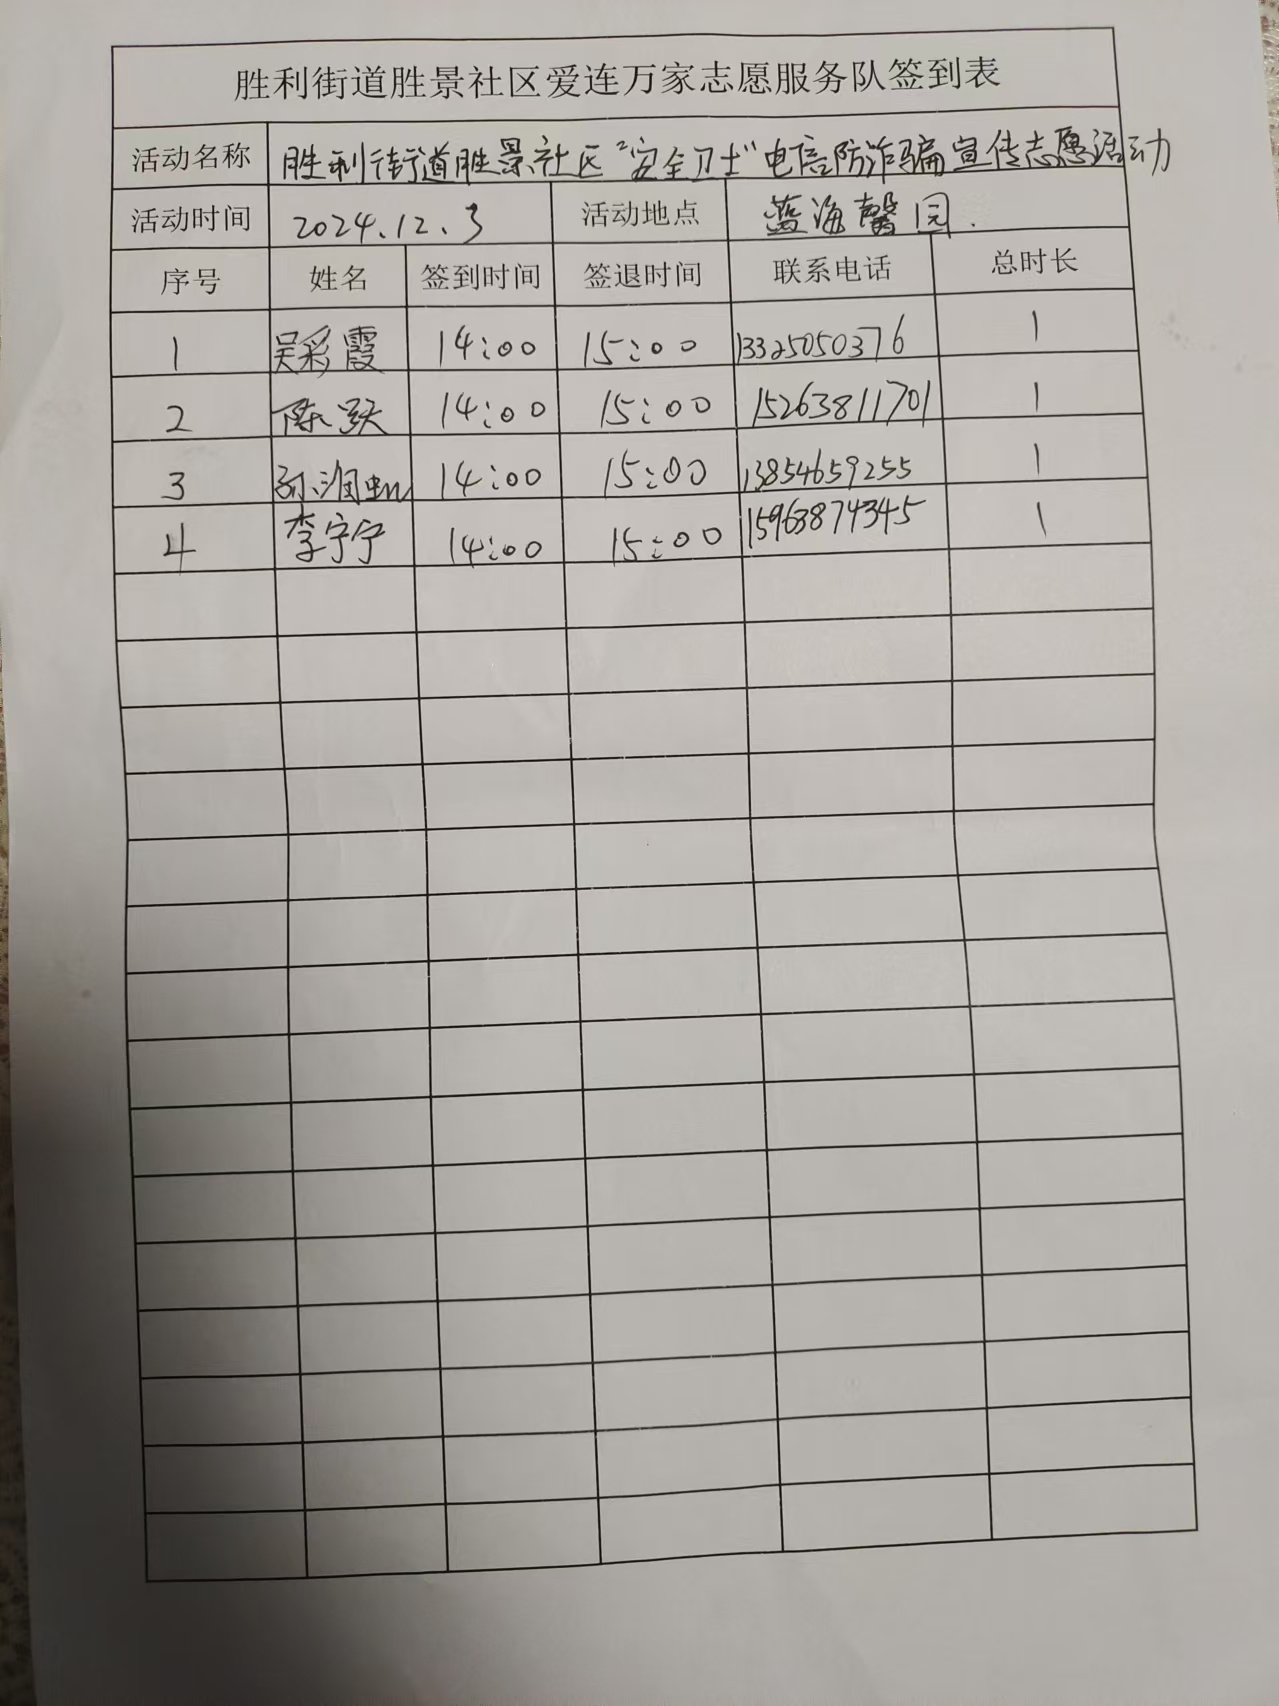 胜利街道胜景社区爱连万家志愿服务队签到表
活动名称 胜利街道胜景社区"安全卫士"电信防诈骗宣传志愿活动
活动时间 2024.12.3 活动地点 蓝海馨园.
序号 姓名 签到时间 签退时间 联系电话 总时长
1 吴彩霞 14:00 15:00 13325050376 1
2 陈跃 14:00 15:00 15263811701 1
3 孙润虹 14:00 15:00 13854659255 1
4 李宁宁 14:00 15:00 15963874345 1